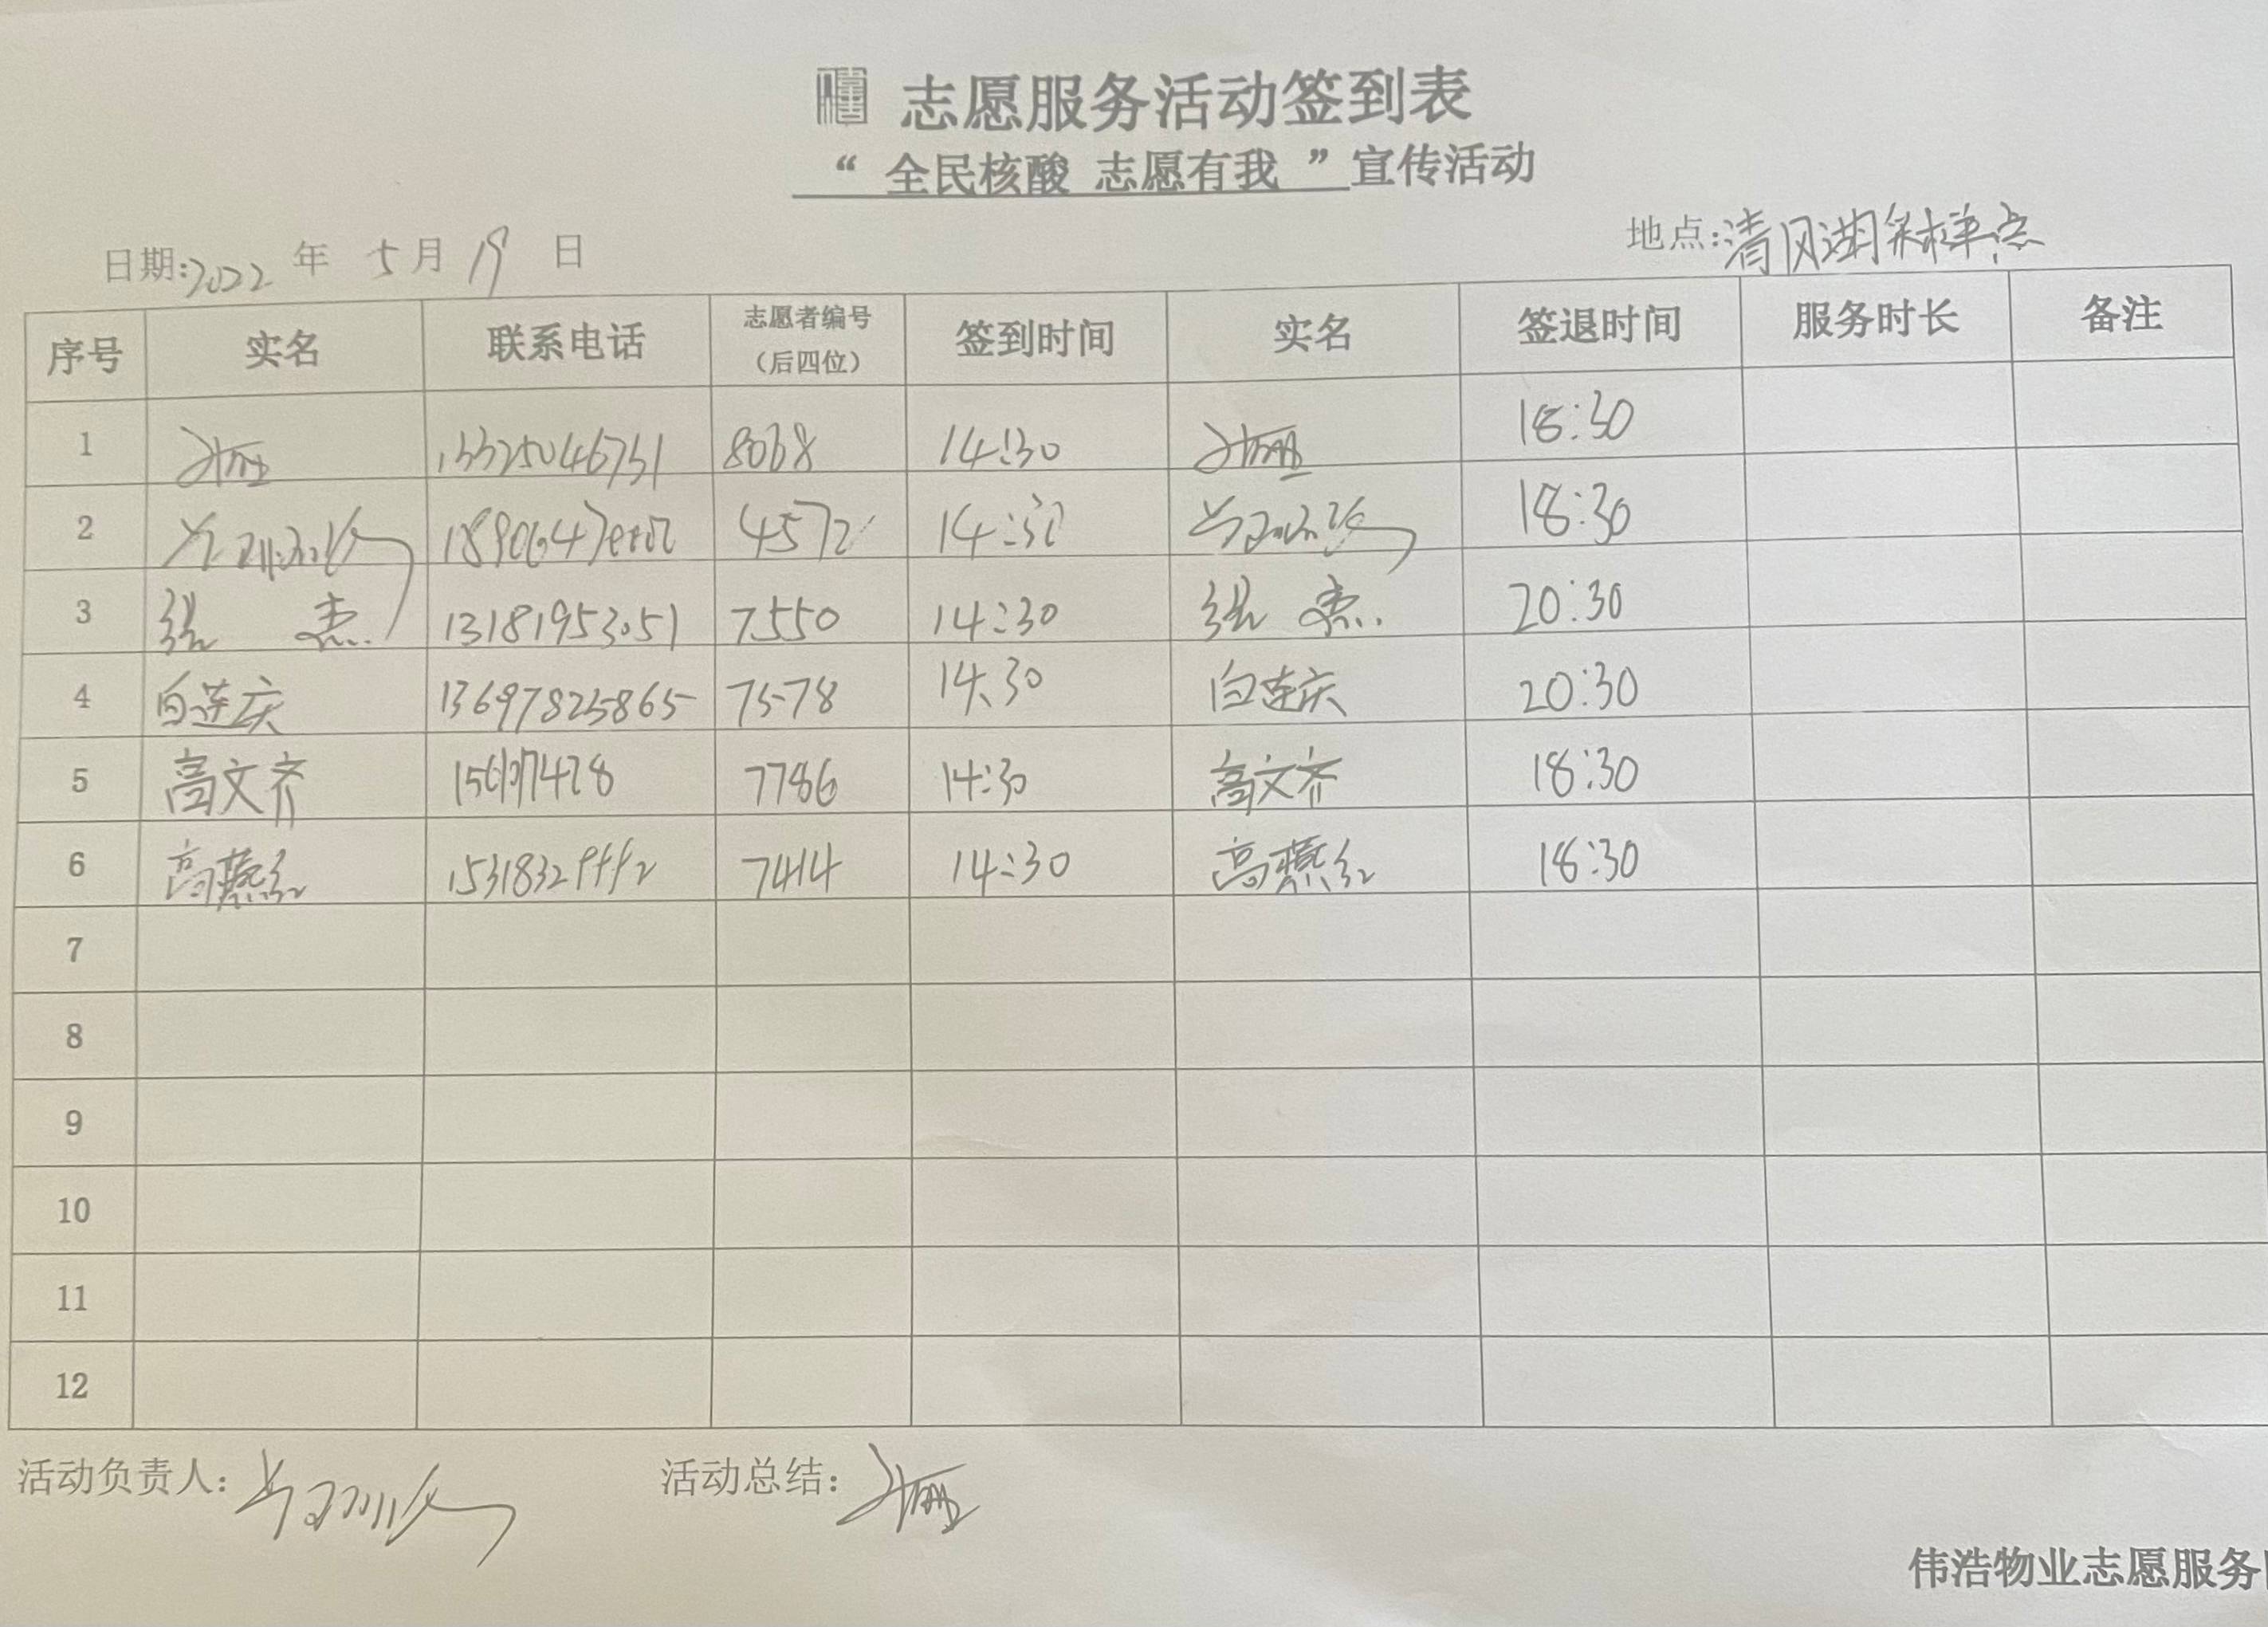 志愿服务活动签到表
“ 全民核酸 志愿有我 ”宣传活动
日期:2022 年 5 月 19 日 地点:清风湖采样点
序号 实名 联系电话 志愿者编号（后四位） 签到时间 实名 签退时间 服务时长 备注
1 13325046731 8068 14:30 18:30
2 4572 14:30 18:30
3 张 杰 13181953051 7550 14:30 张 杰 20:30
4 白连庆 13697825865 7578 14:30 白连庆 20:30
5 高文齐 7786 14:30 高文齐 18:30
6 高燕红 7414 14:30 高燕红 18:30
7
8
9
10
11
12
活动负责人: 活动总结:
伟浩物业志愿服务